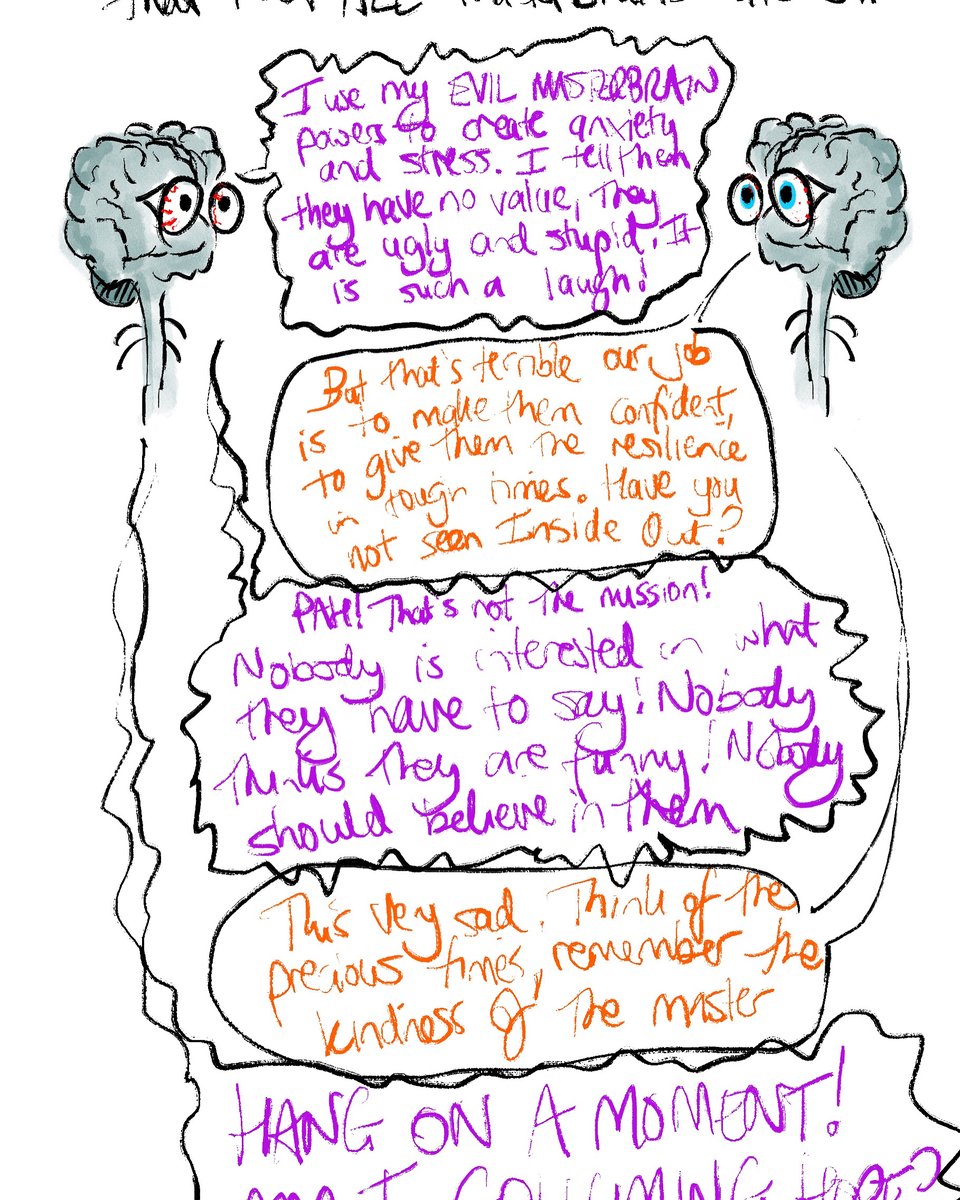 I use my EVIL MASTERBRAIN
powers to create anxiety
and stress. I tell them
they have no value, They
are ugly and stupid. It
is such a laugh!
But that's terrible our job
is to make them confident,
to give them the resilience
in tough times. Have you
not seen Inside Out?
PAH! That's not the mission!
Nobody is interested in what
they have to say! Nobody
thinks they are funny! Nobody
should believe in them
This very sad. Think of the
precious times, remember the
kindness of the master
HANG ON A MOMENT!